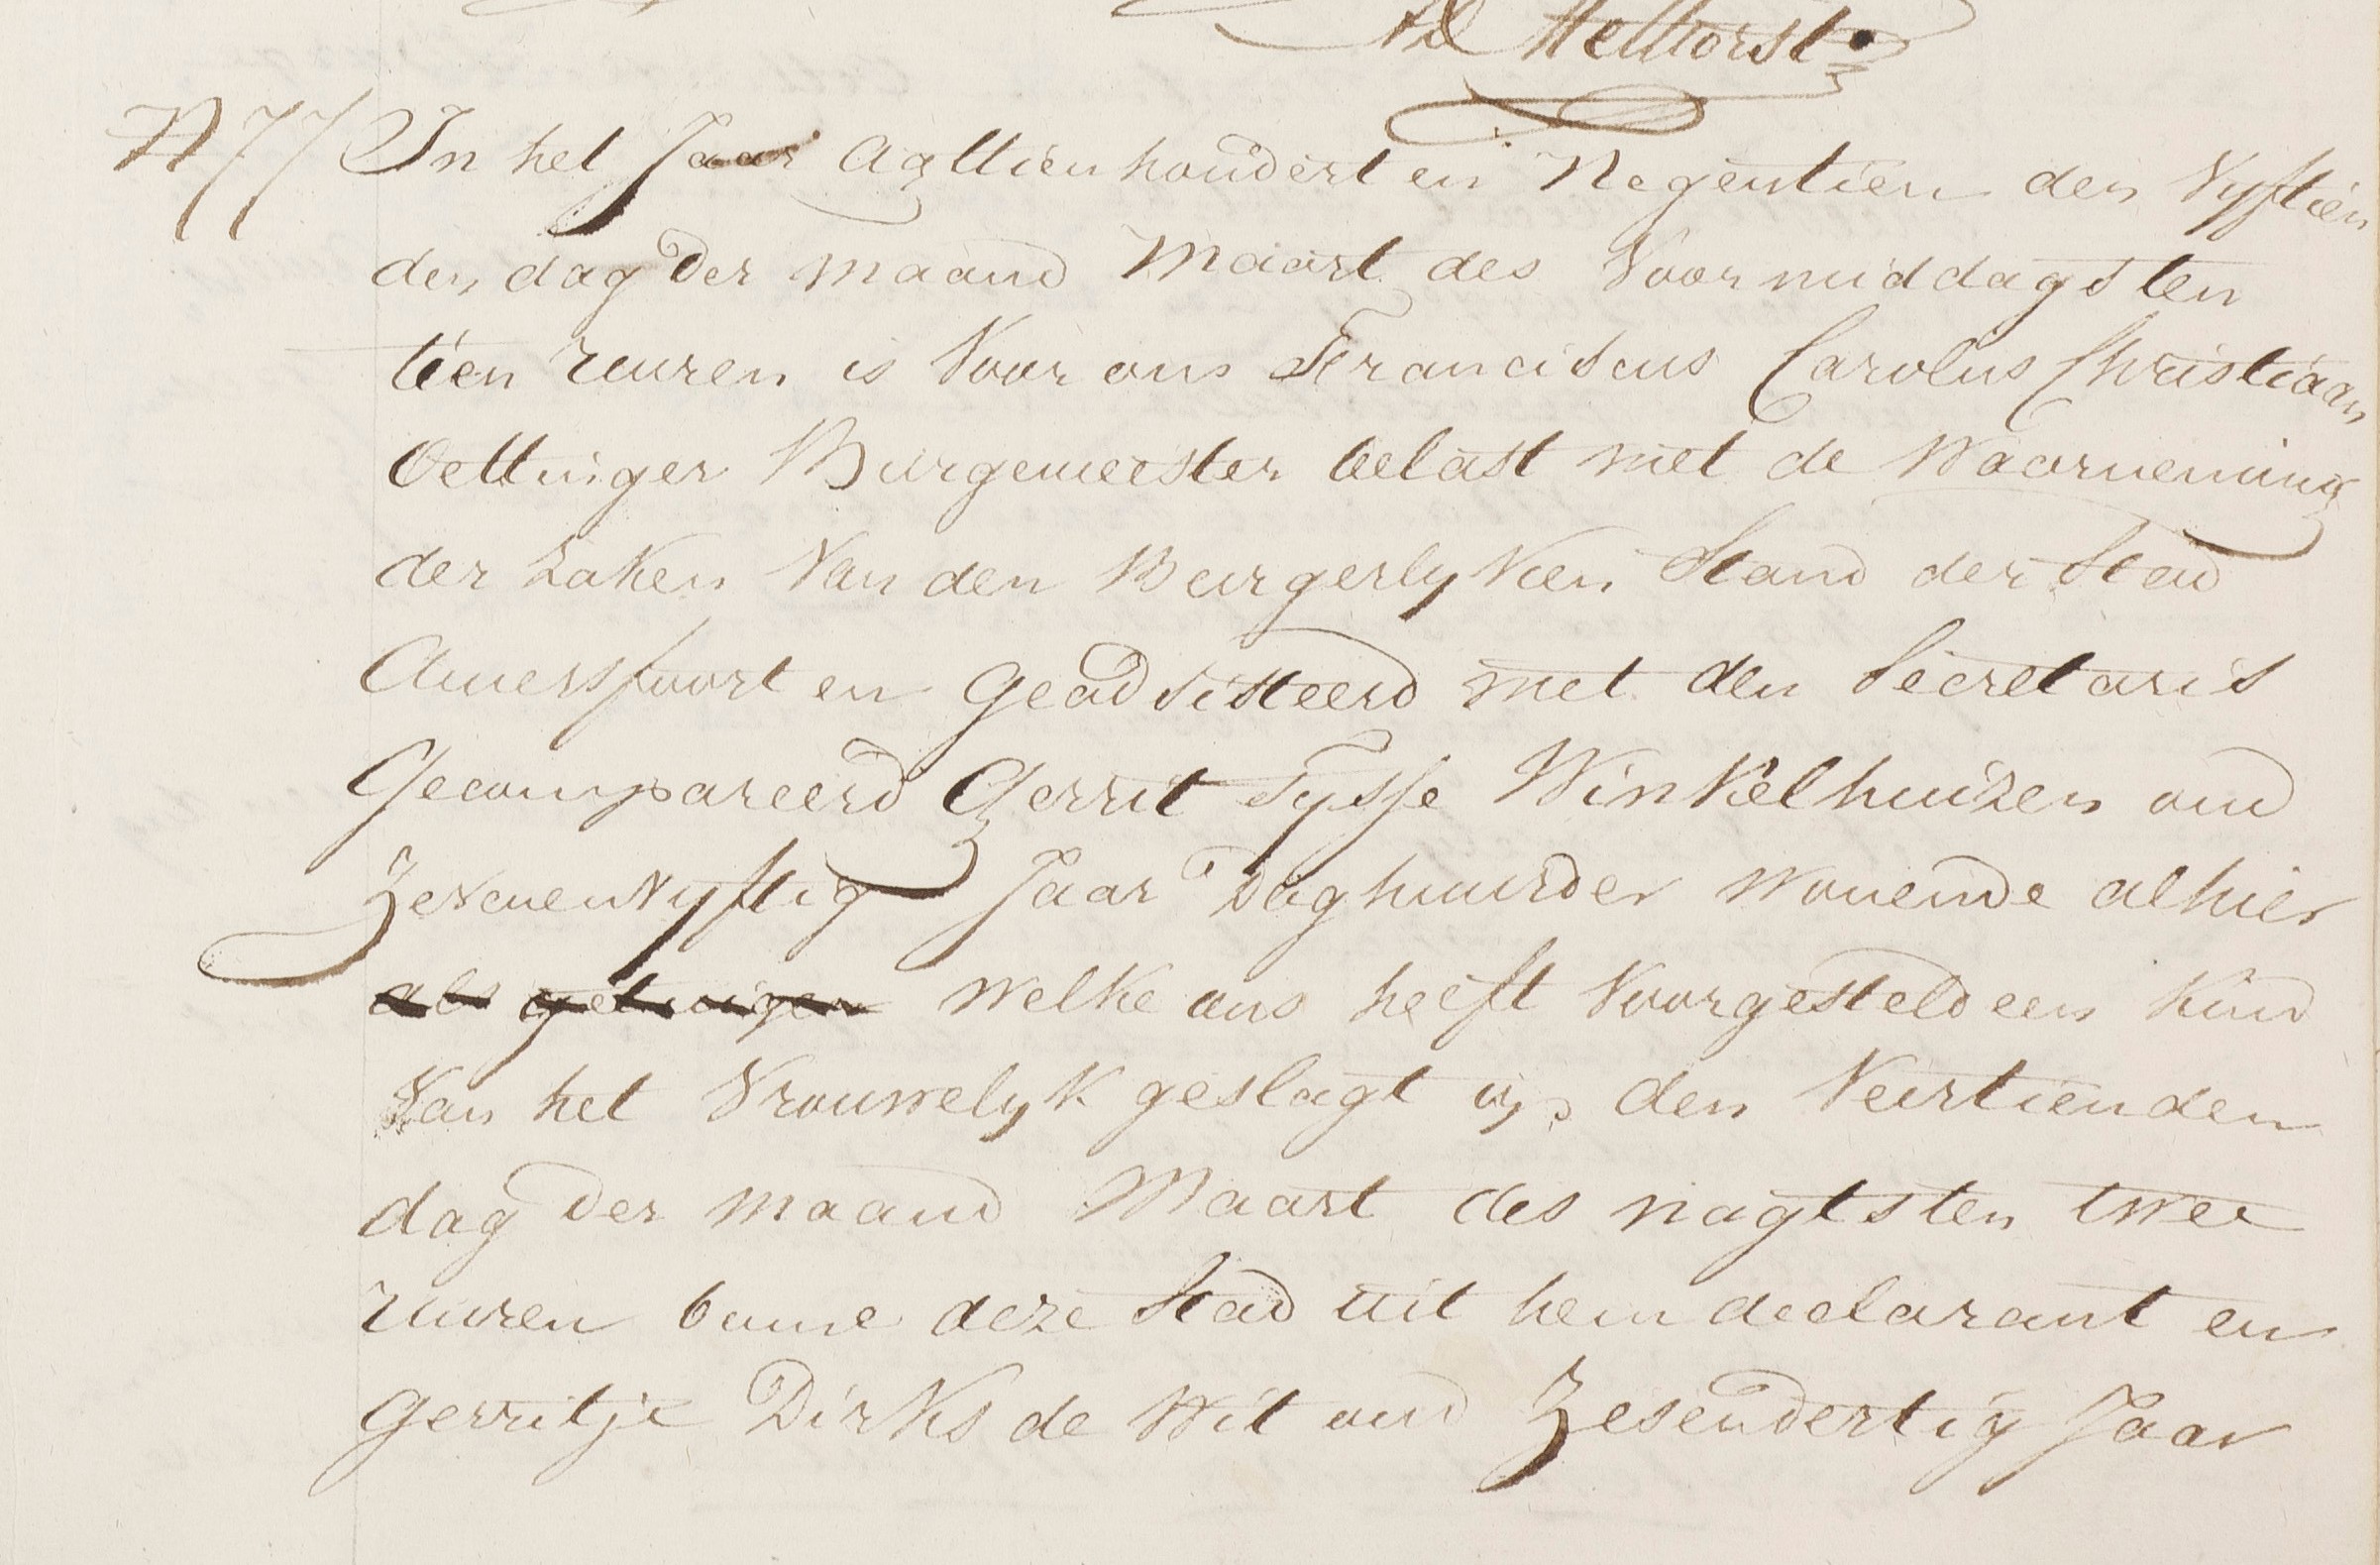 N 77 In het Jaar Agttienhondert en Negentien den Vyftien
den dag der maand Maart des Voormiddags ten
tien uuren is Voor ons Franciscus Carolus Christiaan
Oettinger Burgemeester belast met de Waarneming
der zaken Van den Burgerlyken Stand der Stad
Amersfoort en geadsisteerd met den Secretaris
Gecompareerd Gerrit Tysse Winkelhuizen oud
Zevenenvyftig Jaar Daghuurder wonende alhier
als getuigen welke ons heeft Voorgesteld een kind
Van het Vrouwelyk geslagt op den Veirtienden
dag der maand Maart des nagts ten twee
uuren binne deze Stad uit hem declarant en
Gerritje Dirks de Wit oud Zesendertig Jaar